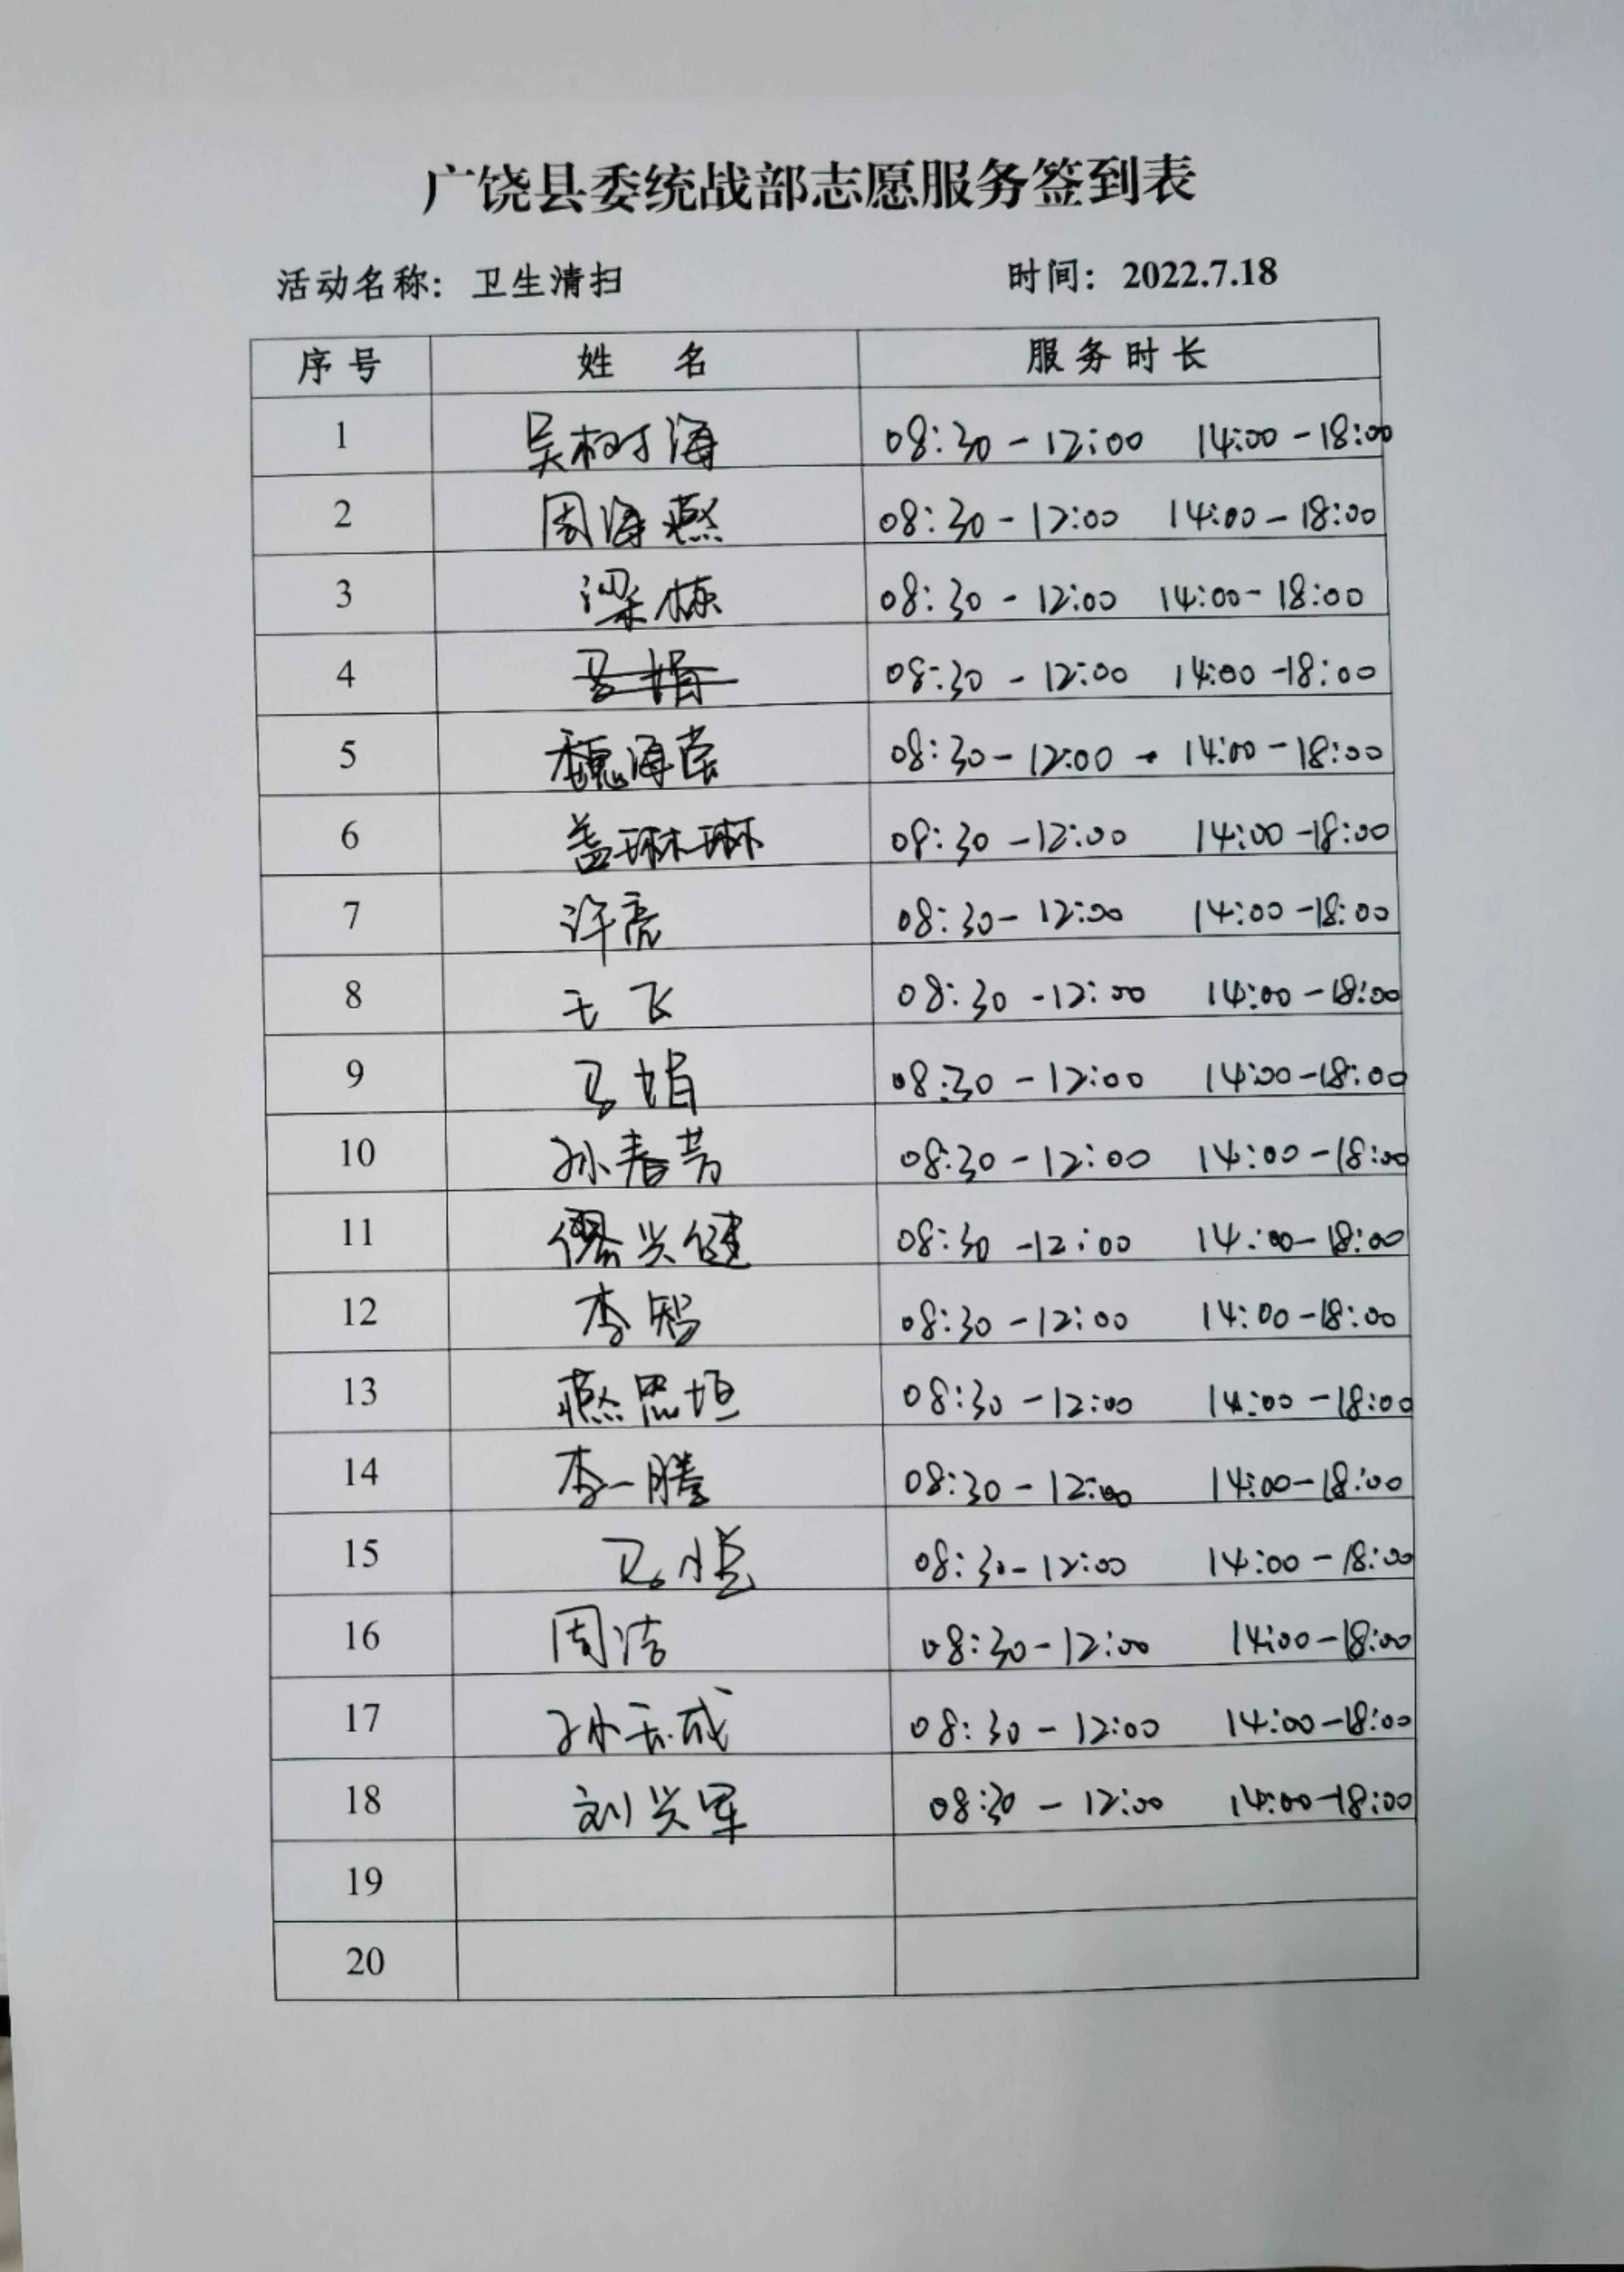 广饶县委统战部志愿服务签到表
活动名称：卫生清扫 时间：2022.7.18
序号 姓名 服务时长
1 吴树海 08:30-12:00 14:00-18:00
2 周海燕 08:30-12:00 14:00-18:00
3 梁栋 08:30-12:00 14:00-18:00
4 马娟 08:30-12:00 14:00-18:00
5 魏海荣 08:30-12:00 - 14:00-18:00
6 盖琳琳 08:30-12:00 14:00-18:00
7 许亮 08:30-12:00 14:00-18:00
8 王飞 08:30-12:00 14:00-18:00
9 马娟 08:30-12:00 14:00-18:00
10 孙春芳 08:30-12:00 14:00-18:00
11 缪兴健 08:30-12:00 14:00-18:00
12 李智 08:30-12:00 14:00-18:00
13 燕思垣 08:30-12:00 14:00-18:00
14 李一腾 08:30-12:00 14:00-18:00
15 08:30-12:00 14:00-18:00
16 周洁 08:30-12:00 14:00-18:00
17 孙玉成 08:30-12:00 14:00-18:00
18 刘兴军 08:30-12:00 14:00-18:00
19
20